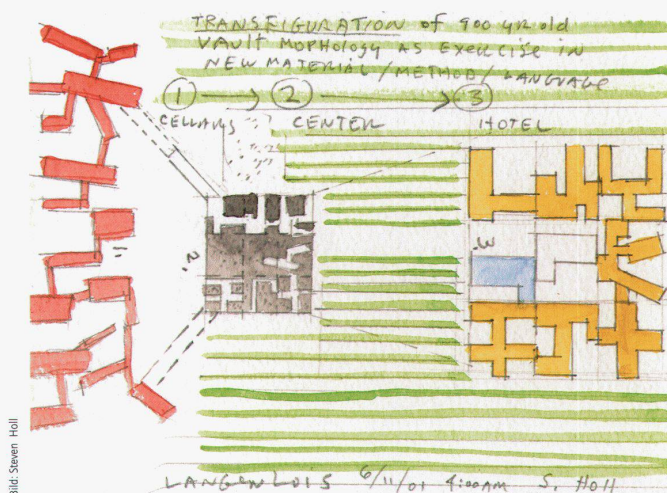 TRANSFIGURATION of 900 yr old
VAULT MOPHOLOGY AS EXERCISE IN
NEW MATERIAL/METHOD/LANGUAGE
1 → 2 → 3
CELLARS CENTER HOTEL
2.
3.
LANGENLOIS 6/11/01 4:00AM S. Holl
Bild: Steven Holl